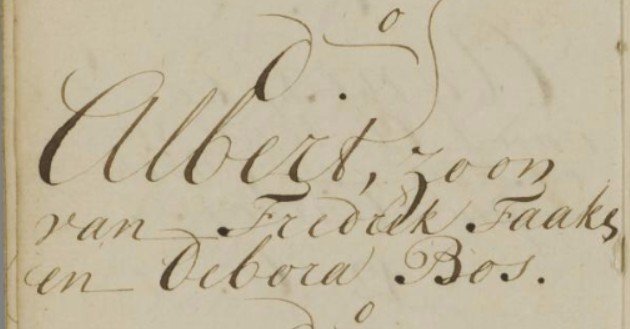 d.o
Albert, zoon
van Fredrik Faaks
en Debora Bos.
d.o